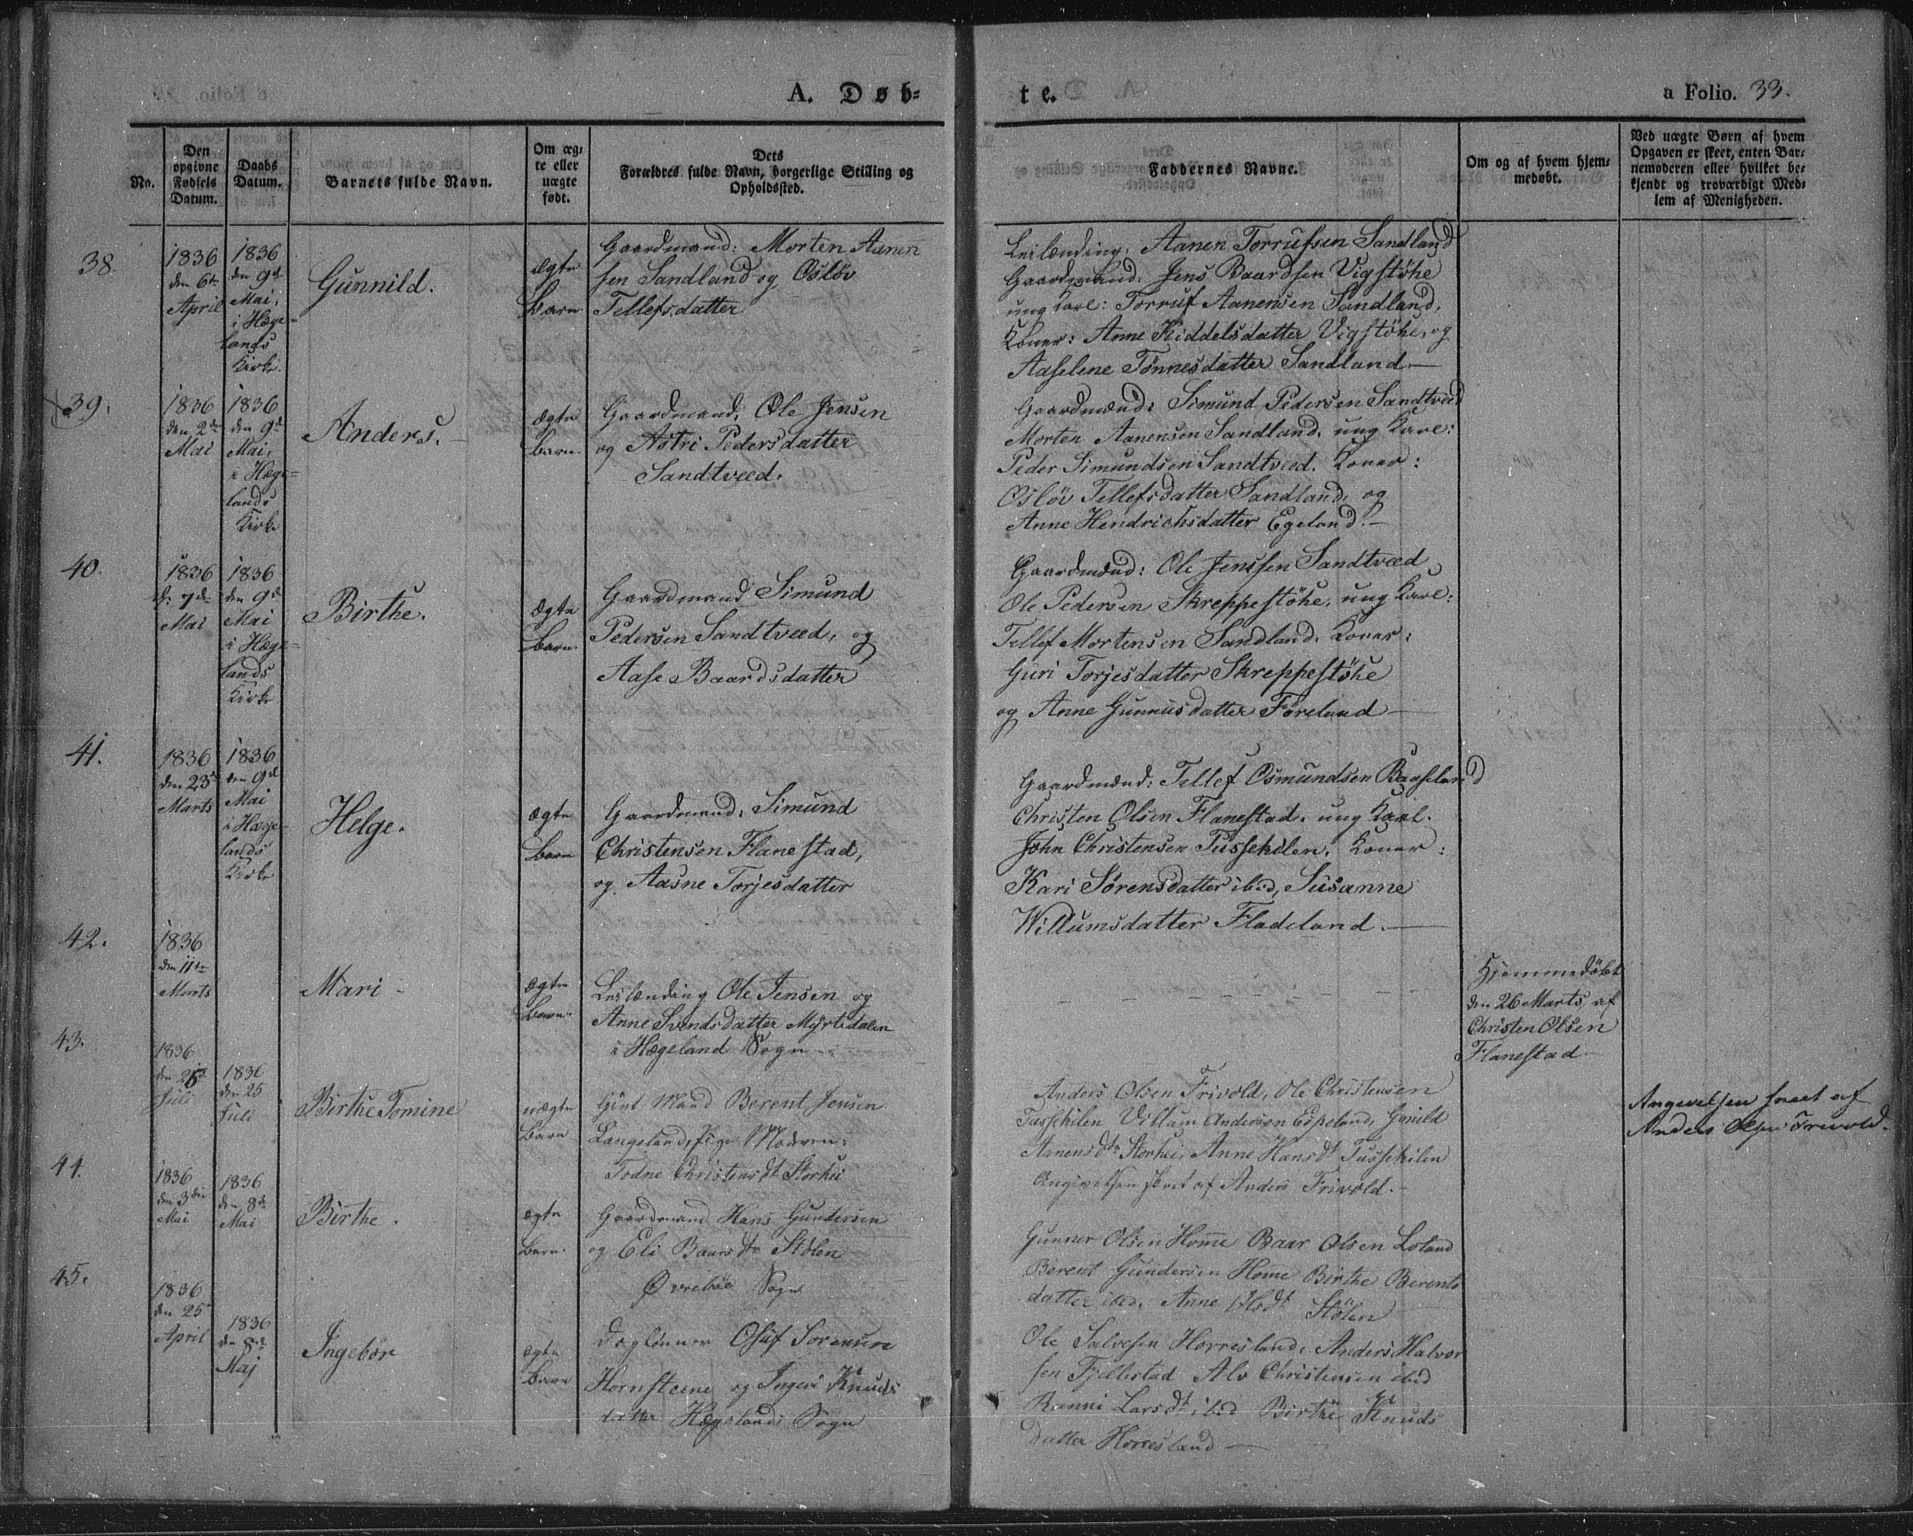 A. Døb-
te.
a Folio. 33.
No.
Den
opgivne
Fødsels
Datum.
Daabs
Datum.
Barnets fulde Navn.
Om æg-
te eller
uægte
født.
Dets
Forældres fulde Navn, borgerlige Stilling og
Opholdssted.
Faddernes Navne.
Om og af hvem hjem-
medøbt.
Ved uægte Børn af hvem
Opgaven er skeet, enten Bar-
nemoderen eller hvilket be-
kjendt og troværdigt Med-
lem af Menigheden.
38.
1836
den 6te
April
1836
den 9de
Mai,
i Hæge-
lands
Kirke.
Gunnild.
ægte
Barn
Gaardmand: Morten Aanen
sen Sandland og Osløv
Tellefsdatter
Leilænding: Aanen Torrufsen Sandland
Gaardmand: Jens Baardsen Vigstøhe
ung Karl: Torruf Aanensen Sandland,
Koner: Anne Kiddelsdatter Vigstøhe, og
Aaselene Tønnesdatter Sandland
39.
1836
den 2de
Mai
1836
den 9de
Mai,
i Hæge-
lands
Kirke
Anders.
ægte
Barn.
Gaardmand: Ole Jensen
og Astri Pedersdatter
Sandtveed.
Gaardmænd: Simund Pedersen Sandtveed
Morten Aanensen Sandland, ung Karl:
Peder Simundsen Sandtveed. Koner:
Osløv Tellefsdatter Sandland, og
Anne Hendrichsdatter Egeland.
40.
1836
d: 7de
Mai
1836
den 9de
Mai
i Hæge-
lands
Kirke
Birthe.
ægte
Barn.
Gaardmand Simund
Pedersen Sandtveed, og
Aase Baardsdatter
Gaardmænd: Ole Jenssen Sandtveed
Ole Pedersen Skreppestøhe, ung Karl:
Tellef Mortensen Sandland. Koner:
Guri Torjesdatter Skreppestøhe
og Anne Gunnusdatter Føreland
41.
1836
den 23de
Marts
1836
den 9de
Mai
i Hæge-
lands
Kirke
Helge.
ægte
Barn
Gaardmand: Simund
Christensen Flanestad,
og Aasne Torjesdatter
Gaardmænd: Tellef Osmundsen Baaseland
Christen Olsen Flanestad. ung Karl.
John Christensen Tusseheien. Koner:
Kari Sørensdatter ibid, Susanne
Willumsdatter Fladeland.
42.
1836
den 11te
Marts
Mari
ægte
Barn.
Leilænding Ole Jensen og
Anne Svendsdatter Myrtedalen
i Hægeland Sogn
Hjemmedøbt
den 26 Marts af
Christen Olsen
Flanestad
43.
1836
den
Juli
1836
den 25
Juli
Birthe Tomine
uægte
Barn
Gift Mand Berent Jensen
Langeland, Pige Modren:
Todne Christensdt Storhei
Anders Olsen Frivold, Ole Christensen
Tusseheien Villum Andersen Espeland, Gunild
Aanensdtr Storhei, Anne Hansdt Tusseheien
Angivelsen skeet af Anders Frivold.
Angivelsen skeet af
Anders Olsen Frivold.
44.
1836
den 3die
Mai
1836
den 8de
Mai
Birthe.
ægte
Barn.
Gaardmand Hans Gundersen
og Eli Baarsdtr Stølen
Øvrebøe Sogn
Gunner Olsen Home Baar Olsen Loland
Berent Gundersen Home Birthe Berents
datter ibid, Anne Stølen
45.
1836
den 25de
April
1836
den 8de
Maj
Ingebor
ægte
Barn
Daglønner Osuf Sorensen
Hornsteene og Ingeri Knuds
datter Hægelands Sogn
Ole Salvesen Horresland, Anders Halvor
sen Fjellestad Alv Christensen ibid
Ranni Larsdt ibid Birthe Knuds
datter Horresland